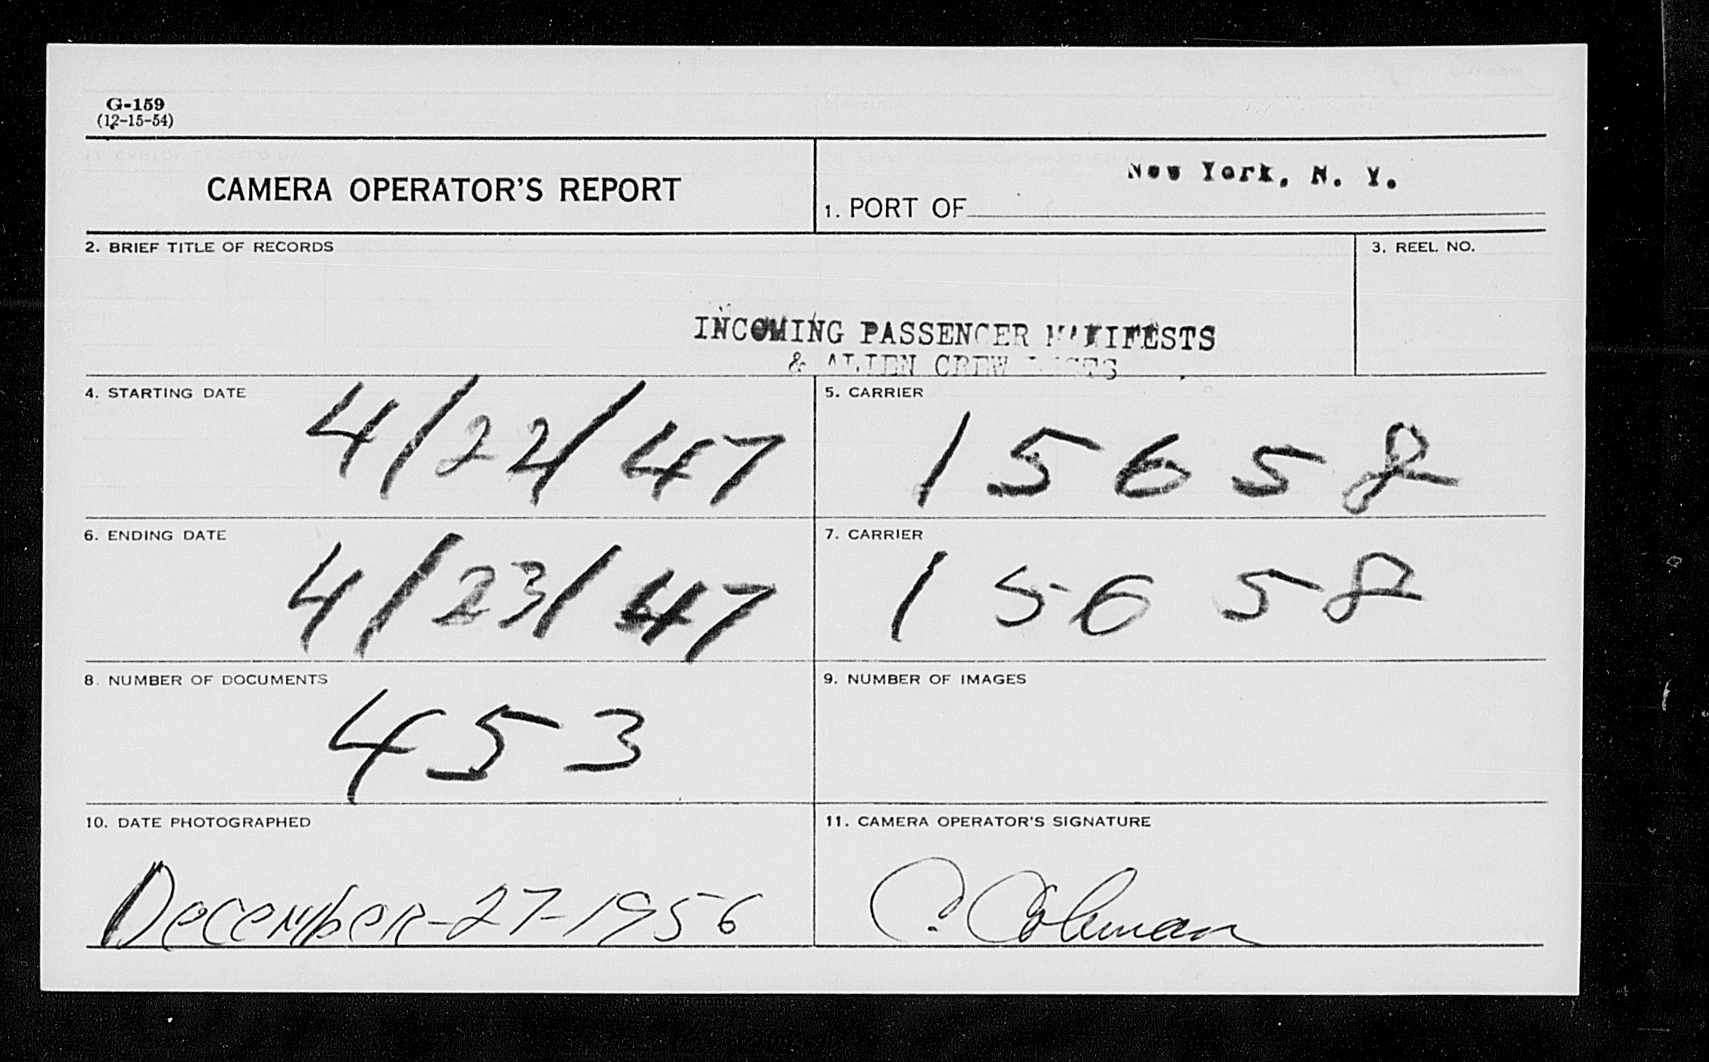 G-159
(12-15-54)
CAMERA OPERATOR'S REPORT
1. PORT OF New York, N. Y.
2. BRIEF TITLE OF RECORDS
3. REEL NO.
INCOMING PASSENGER MANIFESTS
& ALIEN CREW LISTS
4. STARTING DATE 4/22/47
5. CARRIER 15658
6. ENDING DATE 4/23/47
7. CARRIER 15658
8. NUMBER OF DOCUMENTS 453
9. NUMBER OF IMAGES
10. DATE PHOTOGRAPHED
December-27-1956
11. CAMERA OPERATOR'S SIGNATURE
C. Coleman